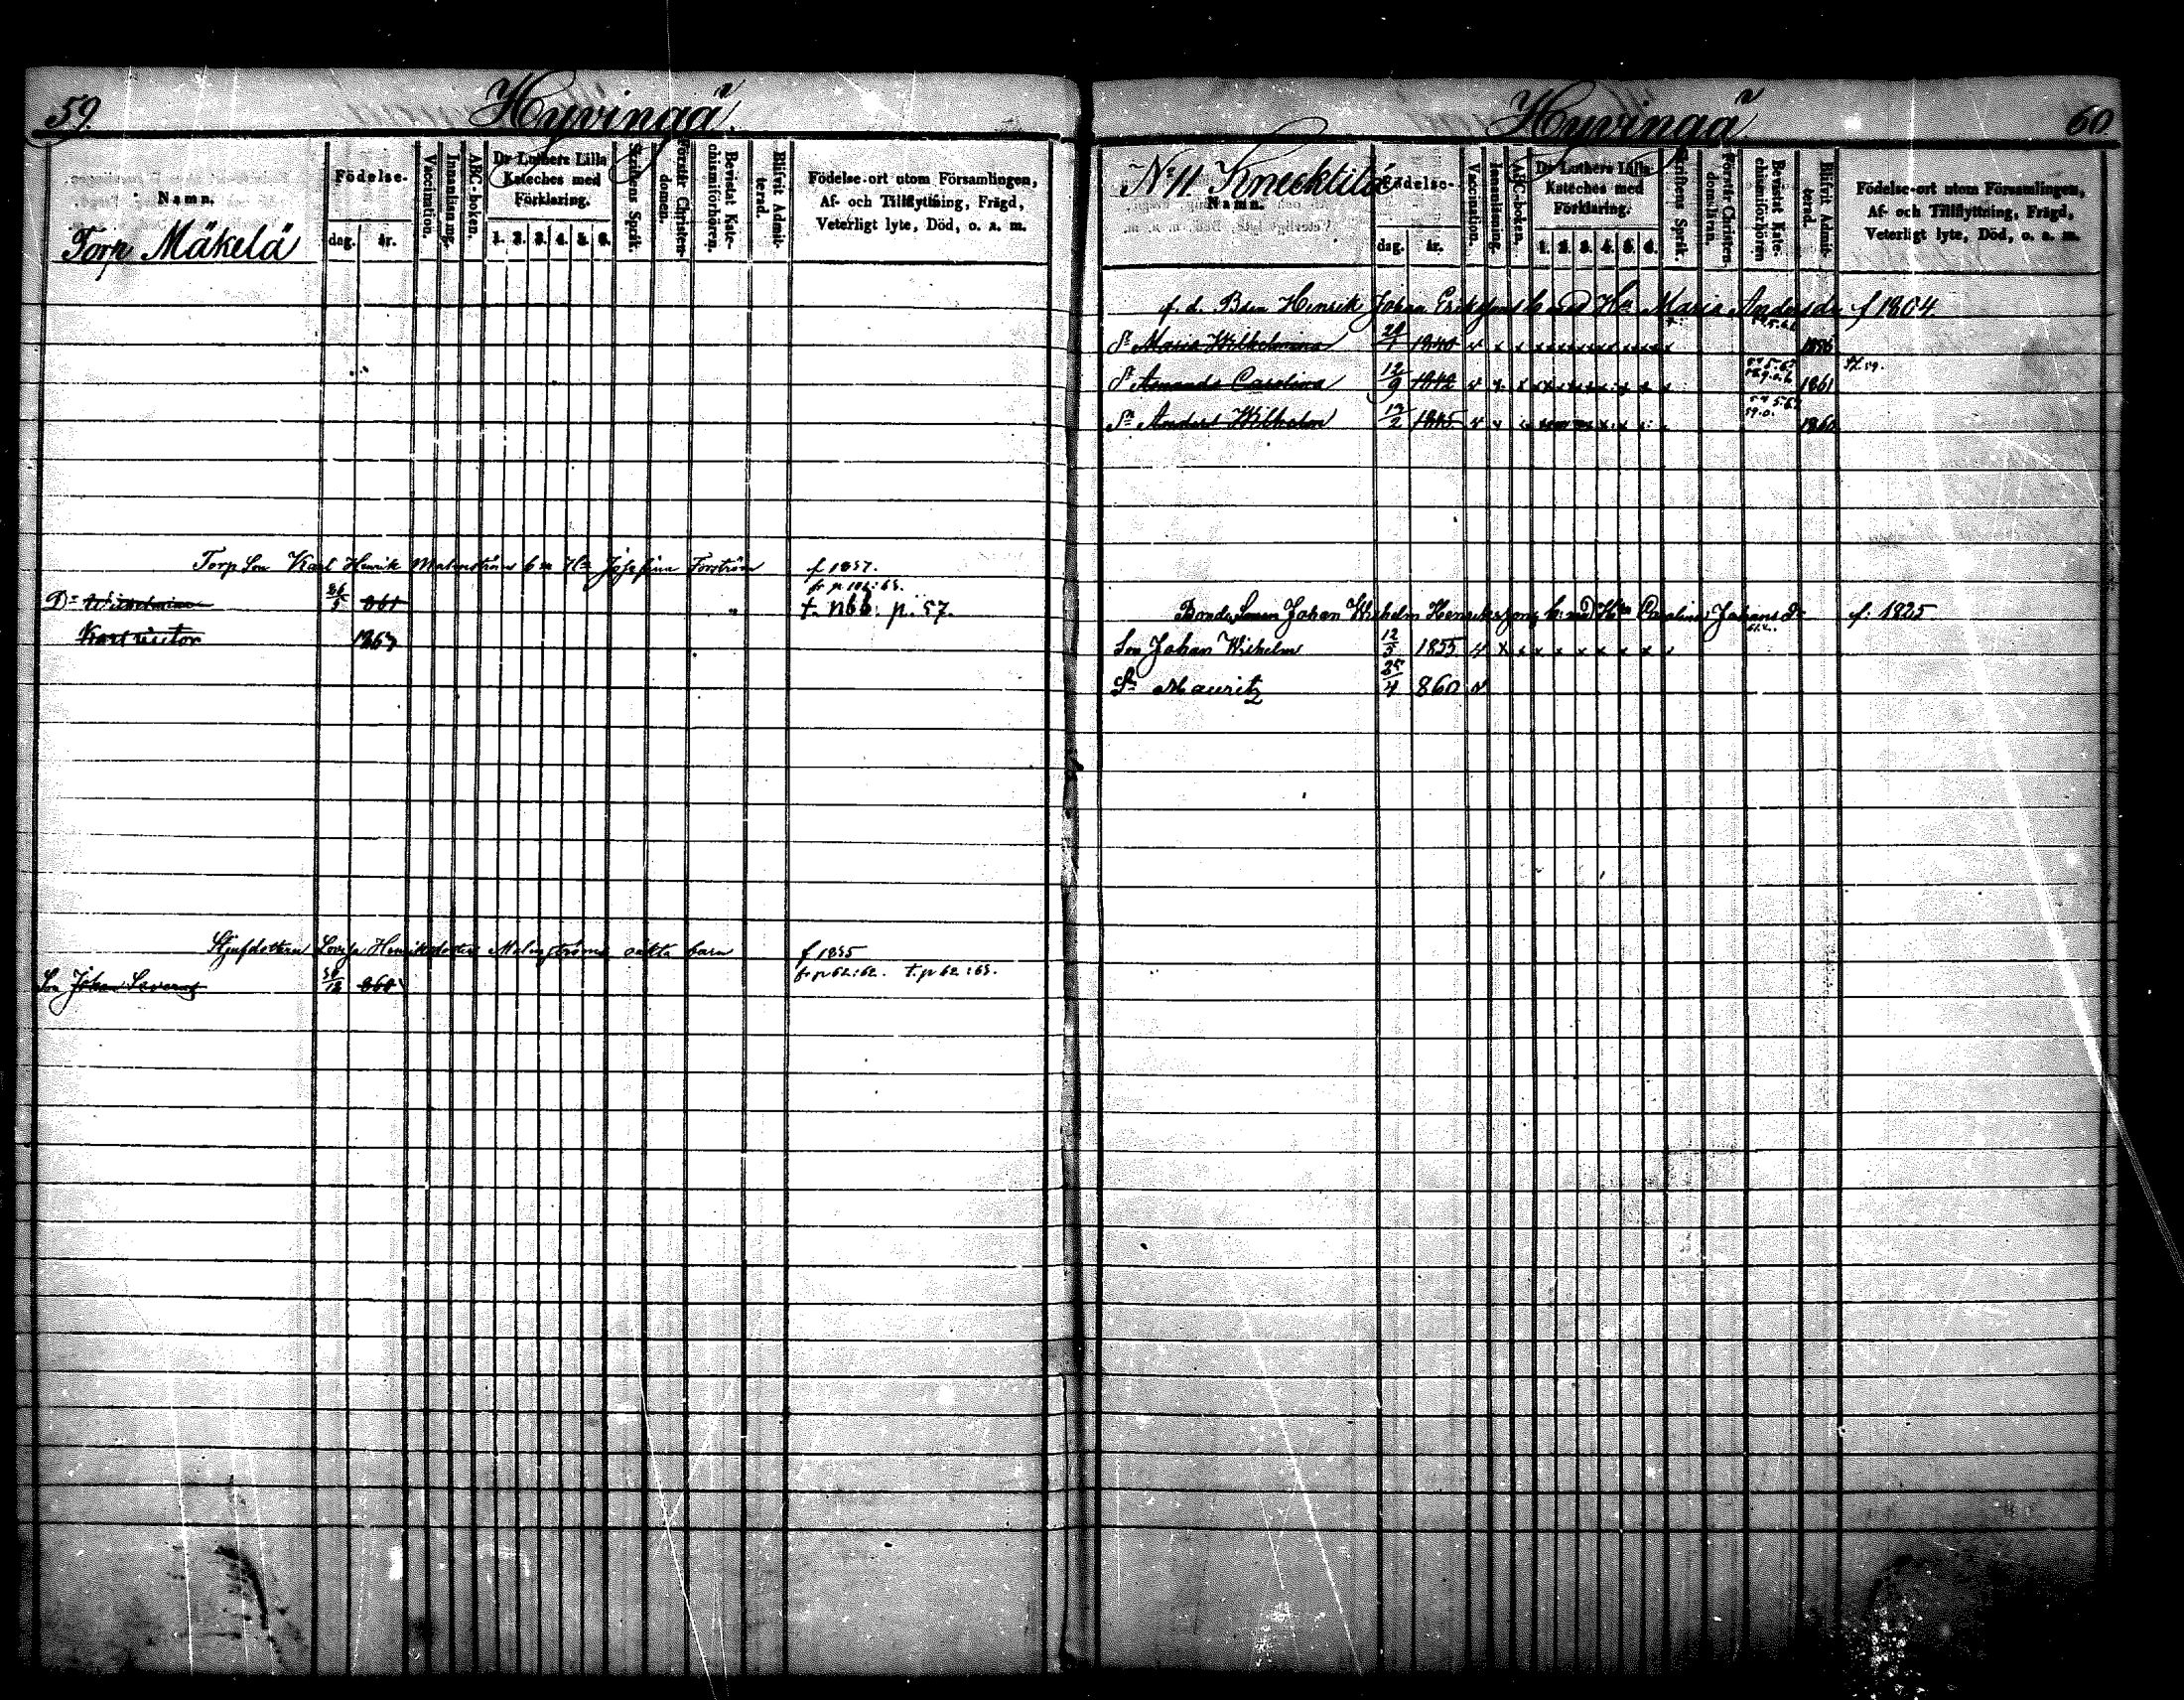 59. Hyvingä
Namn.
Torp Mäkelä
Födelse-
dag. år.
Vaccination.
Innanläsning.
ABC-boken.
Dr Luthers Lilla
Kateches med
Förklaring.
1. 2. 3. 4. 5. 6.
Skriftens Språk.
Förstår Christen-
domen.
Bevistat Kate-
chismiförhören.
Blifvit Admit-
terad.
Födelse-ort utom Församlingen,
Af- och Tillflyttning, Frägd,
Veterligt lyte, Död, o. a. m.
Torp Son Karl Henrik Malmström b m Hu Josefina Forström f 1837.
fr p. 102:65.
Dr Wilhelmina 861 t. p. 57.
Karl Victor 1867
Styfdottern Lovisa Henriksdotter Malmströms oäkta barn f 1835
fr p 62:62. t. p 62:65.
Son Johan 12 860
Hyvingä 60
No 11. Knecktilä
Namn.
Födelse-
dag. år.
Vaccination.
Innanläsning.
ABC-boken.
Dr Luthers Lilla
Kateches med
Förklaring.
1. 2. 3. 4. 5. 6.
Skriftens Språk.
Förstår Christen-
domsläran.
Bevistat Kate-
chismiförhören
Blifvit Admit-
terad.
Födelse-ort utom Församlingen,
Af- och Tillflyttning, Frägd,
Veterligt lyte, Död, o. a. m.
f. d. Bden Henrik Johan Erikssons b. med Hu Maria Andersdr f 1804.
Dr Maria Wilhelmina 1840 v x x 1856
Dr Amanda Carolina 12/9 1842 v x x 1861
Sn Anders Wilhelm 12/2 1845 v 1860
Bonde Sonen Johan Wilhelm Henrikssons b. med Hu Carolina Johansdr f. 1825
Son Johan Wilhelm 12/5 1855 v x x x x x x x x x
Sn Mauritz 25/4 860 v